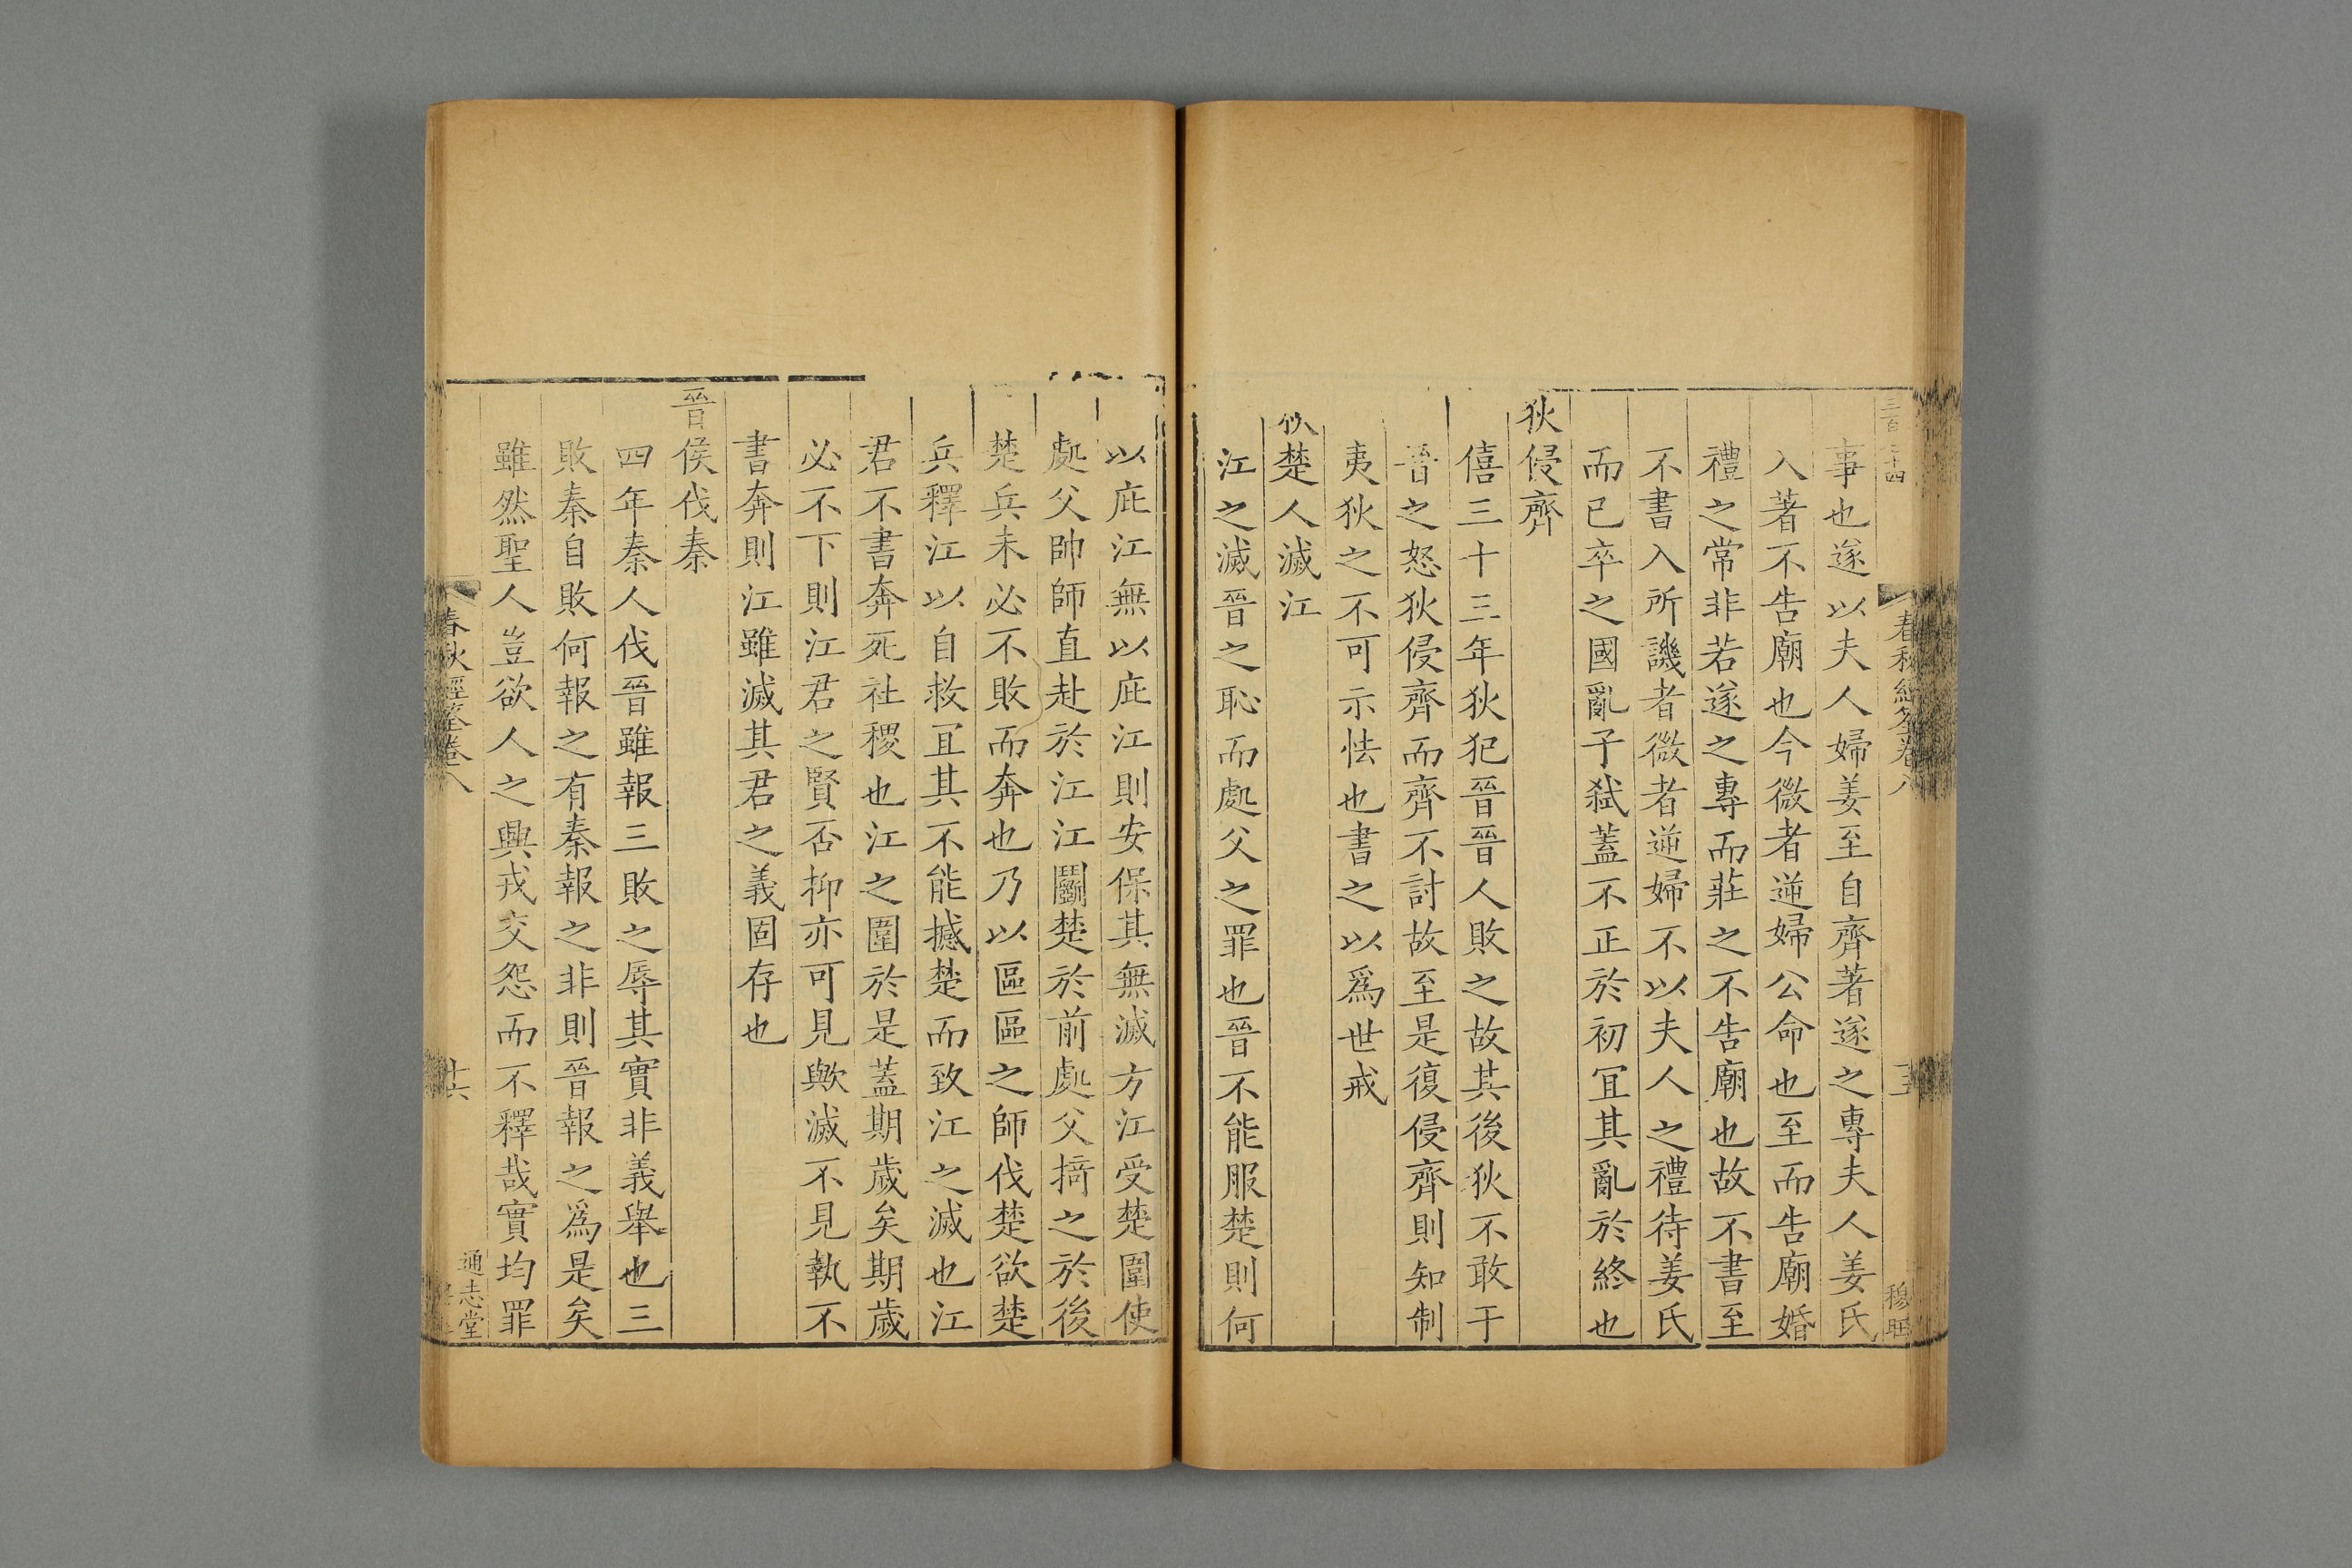 春秋經筌卷八
事也遂以夫人婦姜至自齊著遂之專夫人姜氏
入著不告廟也今微者逆婦公命也至而告廟婚
禮之常非若遂之專而莊之不告廟也故不書至
不書入所譏者微者逆婦不以夫人之禮待姜氏
而已卒之國亂子弑蓋不正於初冝其亂於終也
狄侵齊
僖三十三年狄犯晉晉人敗之故其後狄不敢干
晉之怒狄侵齊而齊不討故至是復侵齊則知制
夷狄之不可示怯也書之以爲世戒
秋楚人滅江
江之滅晉之恥而處父之罪也晉不能服楚則何
以庇江無以庇江則安保其無滅方江受楚圍使
處父帥師直赴於江江鬭楚於前處父掎之於後
楚兵未必不敗而奔也乃以區區之師伐楚欲楚
兵釋江以自救冝其不能撼楚而致江之滅也江
君不書奔死社稷也江之圍於是蓋期歲矣期歲
必不下則江君之賢否抑亦可見歟滅不見執不
書奔則江雖滅其君之義固存也
晉侯伐秦
四年秦人伐晉雖報三敗之辱其實非義舉也三
敗秦自敗何報之有秦報之非則晉報之爲是矣
雖然聖人豈欲人之興戎交怨而不釋哉實均罪
春秋經筌卷八
十六
通志堂